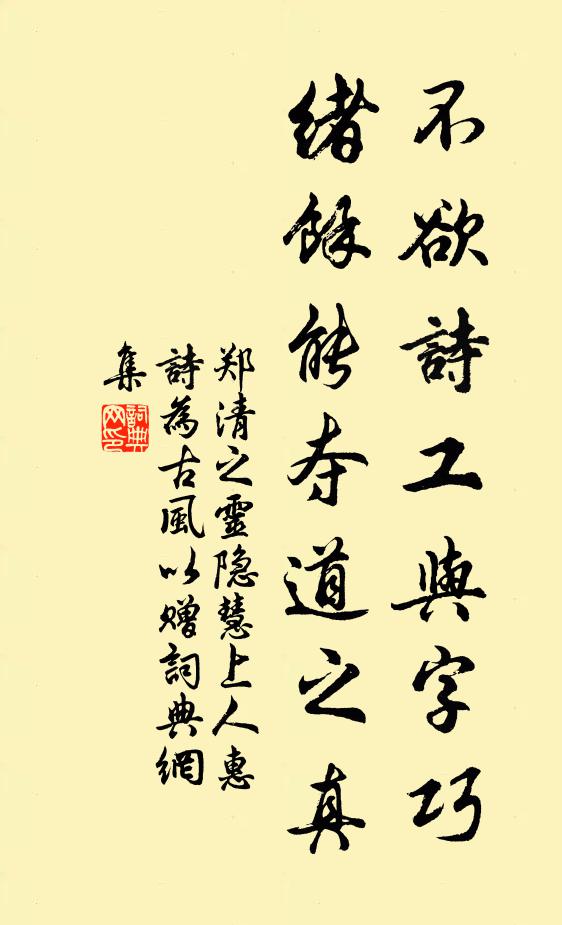 不欲詩工與字巧
緒餘能夺道之真
郑清之靈隐慧上人惠
詩為古風以赠詞典網
集
詞典网印